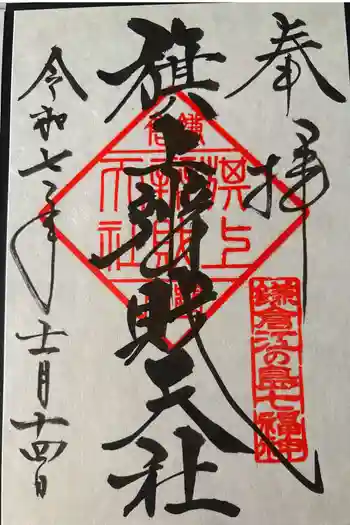 奉拝
旗上弁財天社
鎌倉
旗上
弁財
天社
鎌倉江の島七福神
令和七年十一月十四日